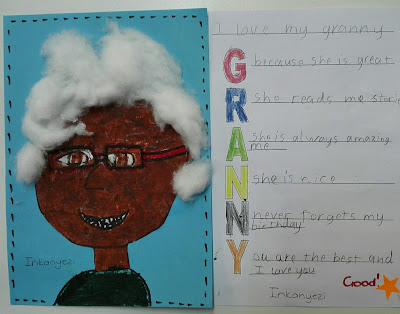 Inkanyezi
I love my granny
G because she is great
R she reads me stories
A she is always amazing
me
N she is nice
N never forgets my
birthday
Y ou are the best and
I love you
Good!
Inkanyezi